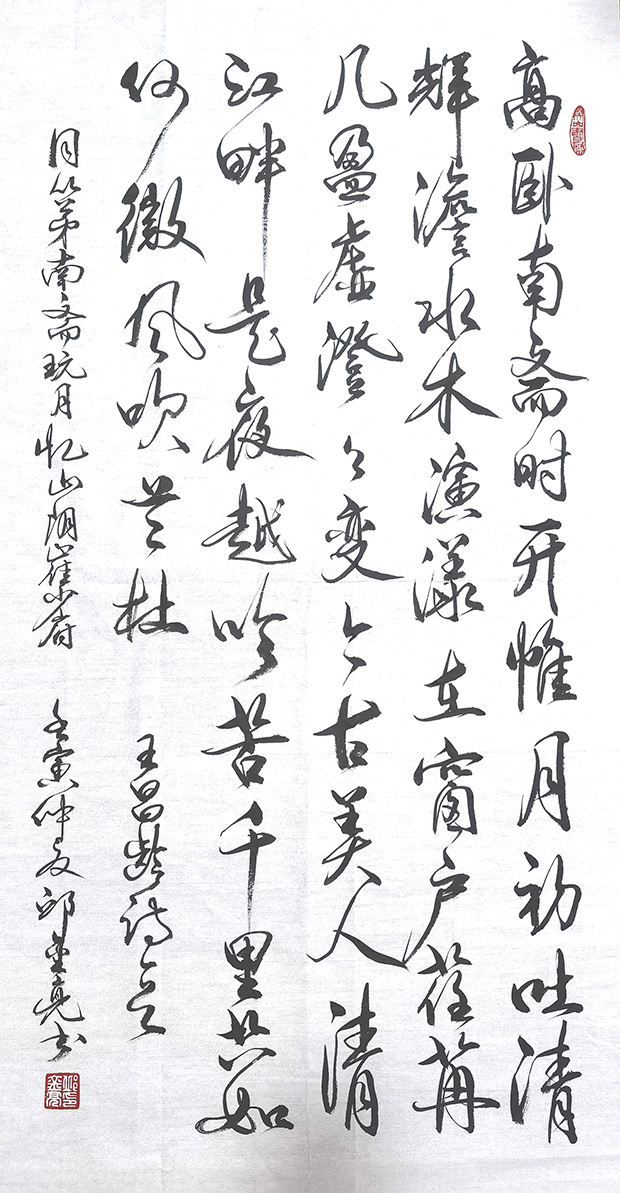 高卧南斋时开帷月初吐清
辉澹水木演漾在窗户荏苒
几盈虚澄々变今古美人清
江畔是夜越吟苦千里共如
何微风吹兰杜
王昌龄诗
同从弟南斋玩月忆山阴崔少府 壬寅仲夏 邱金亮书